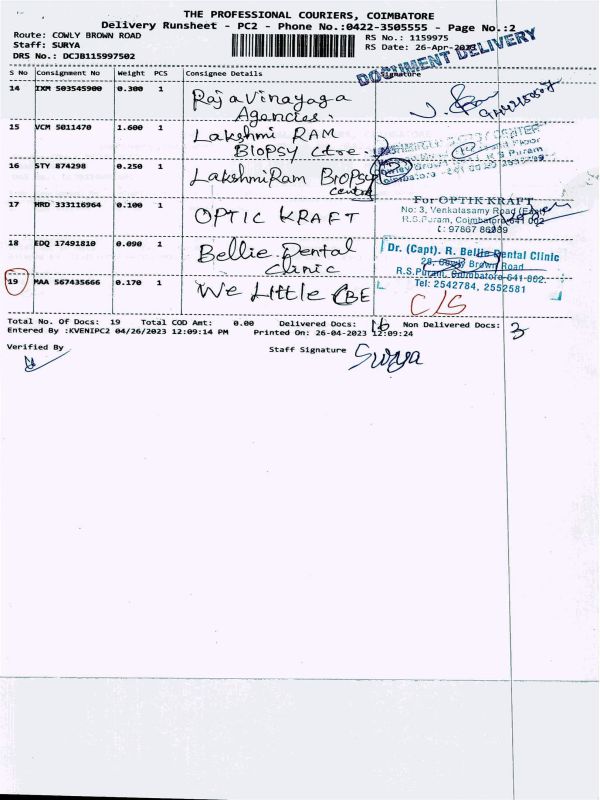 THE PROFESSIONAL COURIERS, COIMBATORE
Delivery Runsheet - PC2 - Phone No.:0422-3505555 - Page No.:2
Route: COWLY BROWN ROAD
RS No.: 1159975
Staff: SURYA
RS Date: 26-Apr-2023
DRS No.: DCJB115997502
DOCUMENT DELIVERY
S No Consignment No Weight PCS Consignee Details Signature
14 IXM 503545900 0.300 1 Rajavinayaga
Agencies.
15 VCM 5011470 1.600 1 Lakshmi RAM
BIOPSY Ctre.
16 STY 874298 0.250 1 LakshmiRam BIOPSy
centre
17 HRD 333116964 0.100 1 OPTIC KRAFT
For OPTIK KRAFT
No: 3, Venkatasamy Road (East)
R.S.Puram, Coimbatore-641 002
18 EDQ 17491810 0.090 1 Bellie Dental
Clinic
Dr. (Capt). R. Bellie Dental Clinic
28, Cowly Brown Road
R.S.Puram, Coimbatore-641 002.
Tel: 2542784, 2552581
19 MAA 567435666 0.170 1 We Little CBE
C/S
Total No. Of Docs: 19 Total COD Amt: 0.00 Delivered Docs: 16 Non Delivered Docs: 3
Entered By :KVENIPC2 04/26/2023 12:09:14 PM Printed On: 26-04-2023 12:09:24
Verified By
Staff Signature Surya